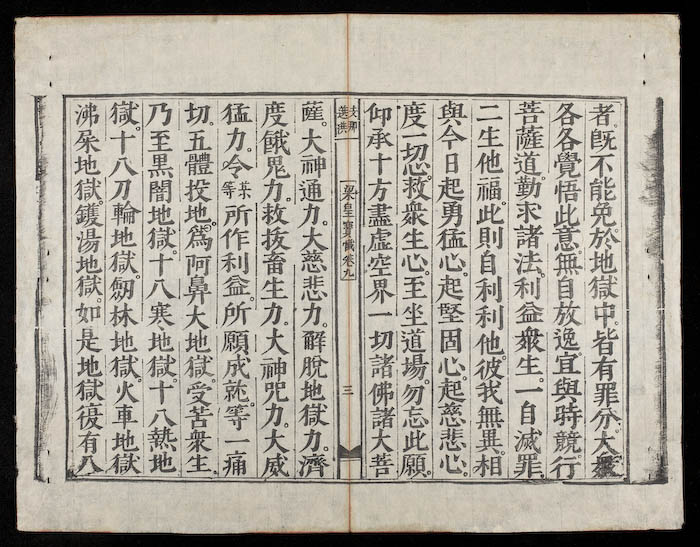 者。既不能免。於地獄中。皆有罪分。大衆
各各覺悟此意。無自放逸。宜與時競。行
菩薩道。勤求諸法。利益衆生。一自滅罪。
二生他福。此則自利利他。彼我無異。相
與今日起勇猛心。起堅固心。起慈悲心。
度一切心。救衆生心。至坐道場。勿忘此願。
仰承十方盡虛空界一切諸佛諸大菩
梁皇寶懺卷九
三
薩。大神通力。大慈悲力。解脫地獄力。濟
度餓鬼力。救拔畜生力。大神咒力。大威
猛力。令某等所作利益。所願成就。等一痛
切。五體投地。爲阿鼻大地獄。受苦衆生。
乃至黑闇地獄。十八寒地獄。十八熱地
獄。十八刀輪地獄。劒林地獄。火車地獄
沸屎地獄。鑊湯地獄。如是地獄。復有八